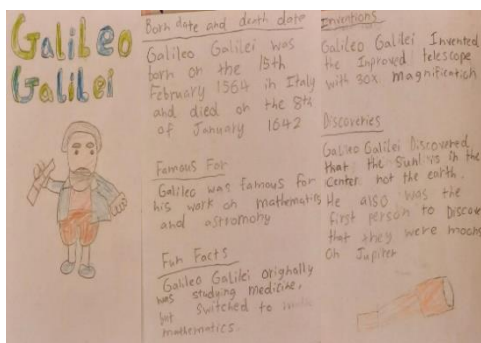 Galileo
Galilei
Born date and death date
Galileo Galilei was
born on the 15th
February 1564 in Italy
and died on the 8th
of January 1642
Famous For
Galileo was famous for
his work on mathematics
and astromony
Fun Facts
Galileo Galilei orighally
was studying medicine,
but switched to
mathematics.
Inventions
Galileo Galilei Invented
the Inproved telescope
with 30x magnification
Discoveries
Galileo Galilei Discovered
that the Sun is in the
Center not the earth.
He also was the
first person to Discover
that they were moons
On Jupiter